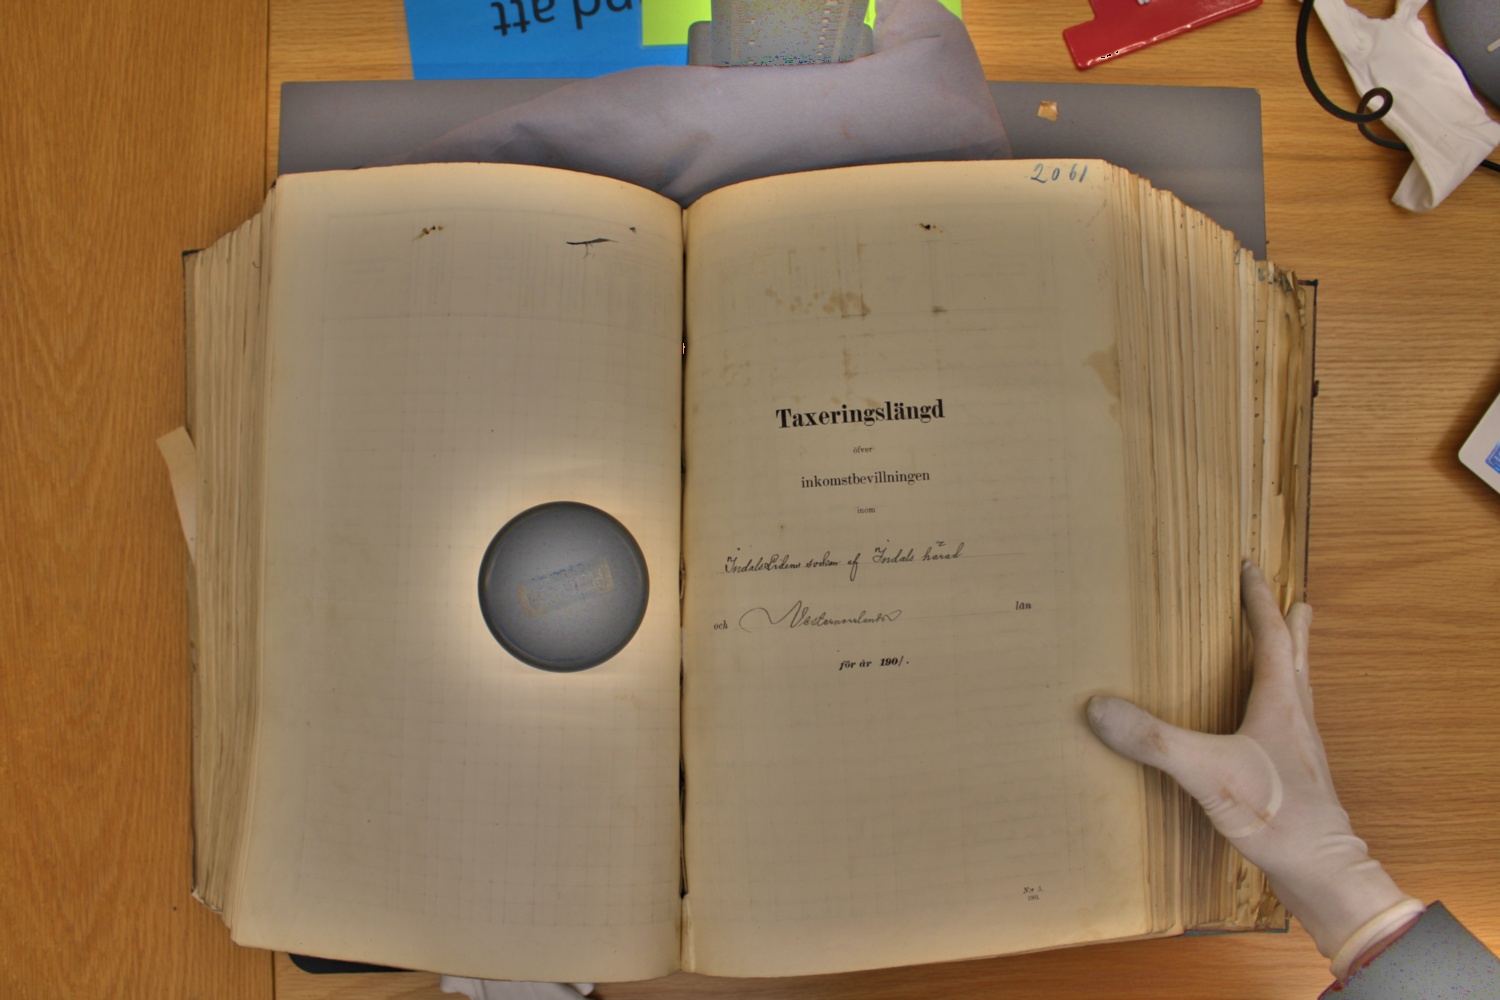 nd att
2061
Taxeringslängd
öfver
inkomstbevillningen
inom
Indals-Lidens socken af Indals härad
och Vesternorrlands län
för år 1901.
N:o 5.